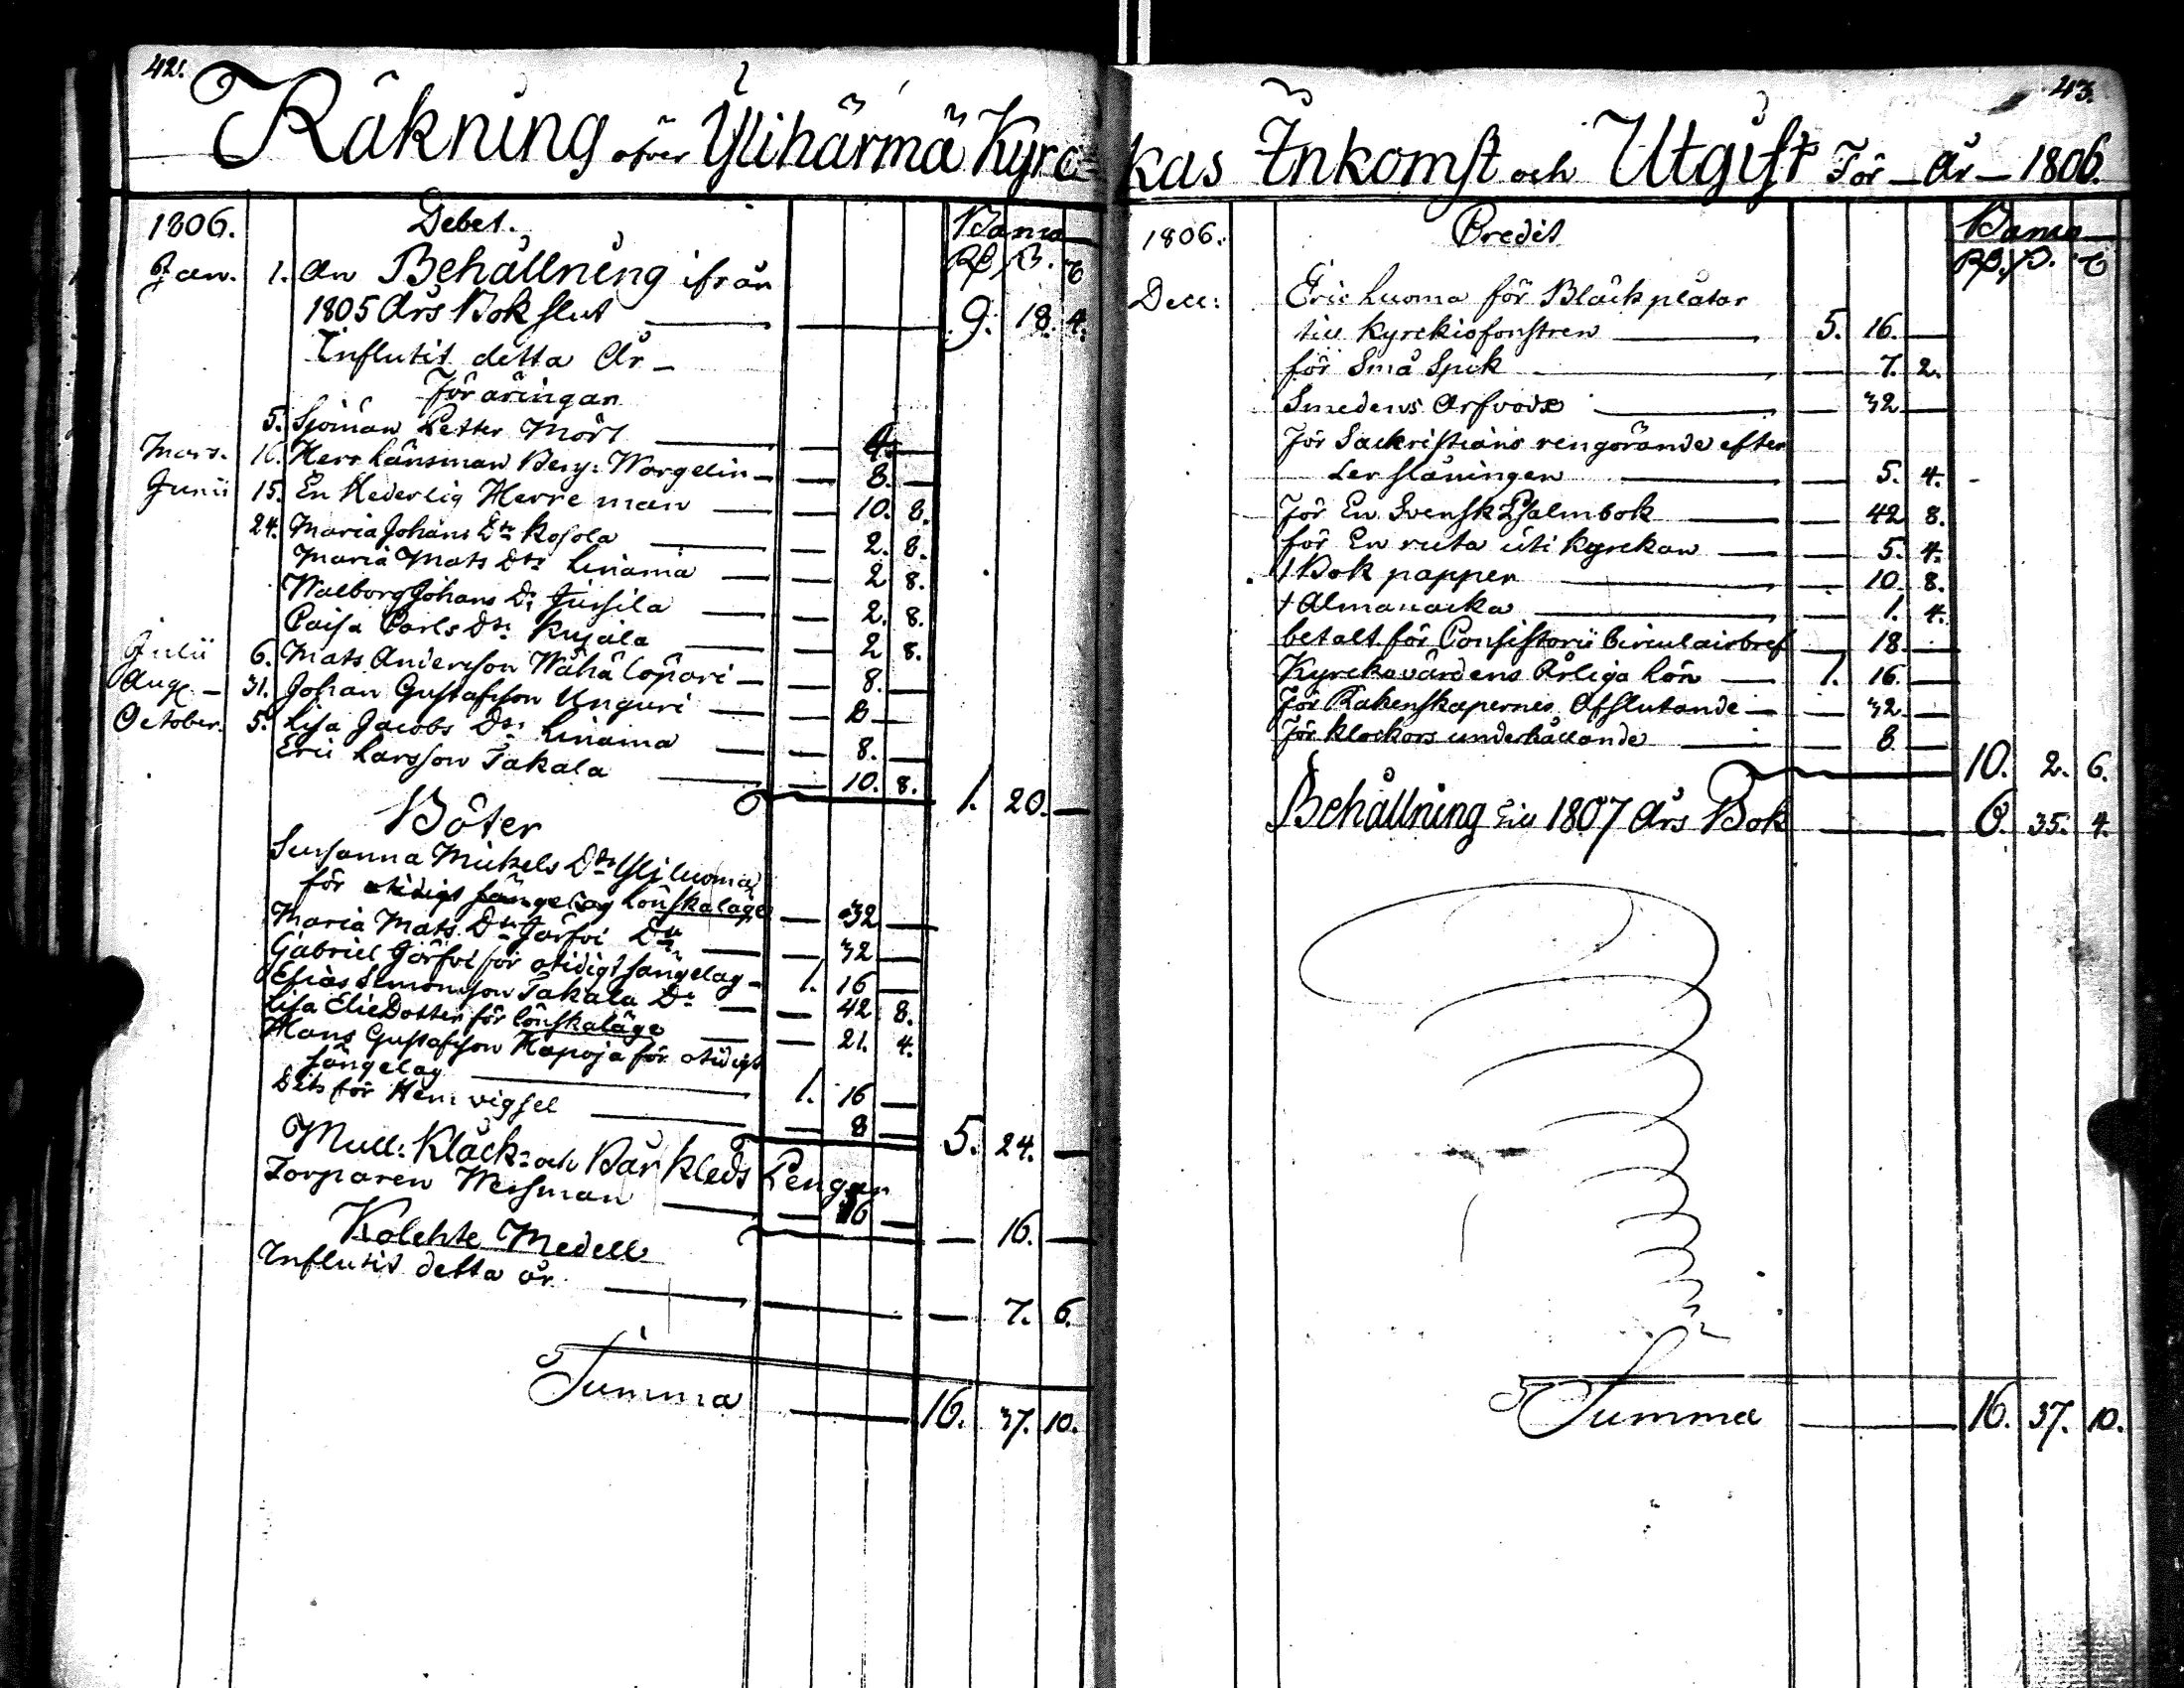 42.
Räkning öfver Ylihärmä Kyrc=
1806. Debet. Banco
Rd. ß. r
Jan. 1. an Behållning ifrån
1805 Års Bokslut — 9. 18. 4.
Influtit detta År —
Föräringar
5. Sjöman Petter Mört — — 4. —
Mars. 16. Herr Länsman Benj: Worgelin — — 8. —
Junii 15. En Hederlig Herre man — — 10. 8.
24. Maria Johans Dr Kosola — — 2. 8.
Maria Mats Dtr Linama — — 2 8.
Walborg Johans Dr Jussila — — 2. 8.
Caisa Carls Dtr Kujala — — 2 8.
Julii 6. Mats Andersson Wähälöpari — — 8. —
Aug — 31. Johan Gustafsson Unguri — — 8 —
October. 5. Lisa Jacobs Dtr Linama — — 8. —
Eric Larsson Takala — — 10. 8.
1. 20. —
Böter
Susanna Mickels Dtr Yliluoma
för otidigt sängelag Lönskaläge — 32 —
Maria Mats Dtr Järfvi Do — — 32 —
Gabriel Järfvi för otidigt sängelag — 1. 16 —
Elias Simonsson Takala Do — — 42 8.
Lisa Elie Dotter för lönskaläge — — 21. 4.
Hans Gustafsson Hapoja för otidigt
sängelag — 1. 16 —
Dito för Hemvigsel — — 8 —
5. 24. —
Mull: Klåck= och Bårkleds Pengar
Torparen Messman — — 16 —
— 16. —
Kolehte Medell
Influtit detta år — — 7. 6.
Summa — 16. 37. 10.
43.
kas Inkomst och Utgift För — År — 1806.
1806. Credit Banco
Rd. ß. r
Dec: Eric Luoma för Bläckplåtar
till Kyrckiofönstren — 5. 16. —
för Små Spik — — 7. 2.
Smedens Arfvode — — 32 —
För Sackristians rengörande efter
Lerslåningen — — 5. 4.
För En Svensk Psalmbok — — 42 8.
för En ruta uti Kyrckan — — 5. 4.
1 Bok papper — — 10. 8.
1 Almanacka — — 1. 4.
betalt för Consistorii Circulairbref — 18. —
Kyrckovärdens Årliga Lön — 1. 16. —
För Räkenskapernes Afslutande — — 32. —
För klockors underhållande — — 8 —
10. 2. 6.
Behållning till 1807 Års Bok — 6. 35. 4.
Summa — 16. 37. 10.